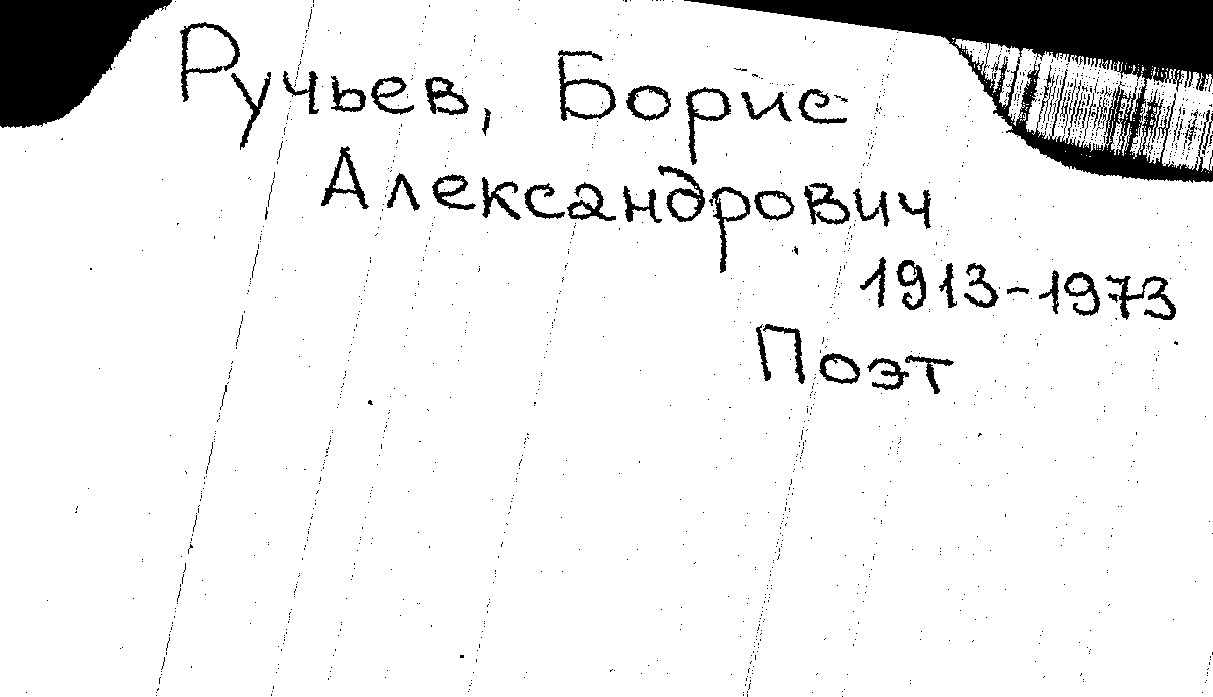 Ручьев, Борис
Александрович
1913-1973
Поэт